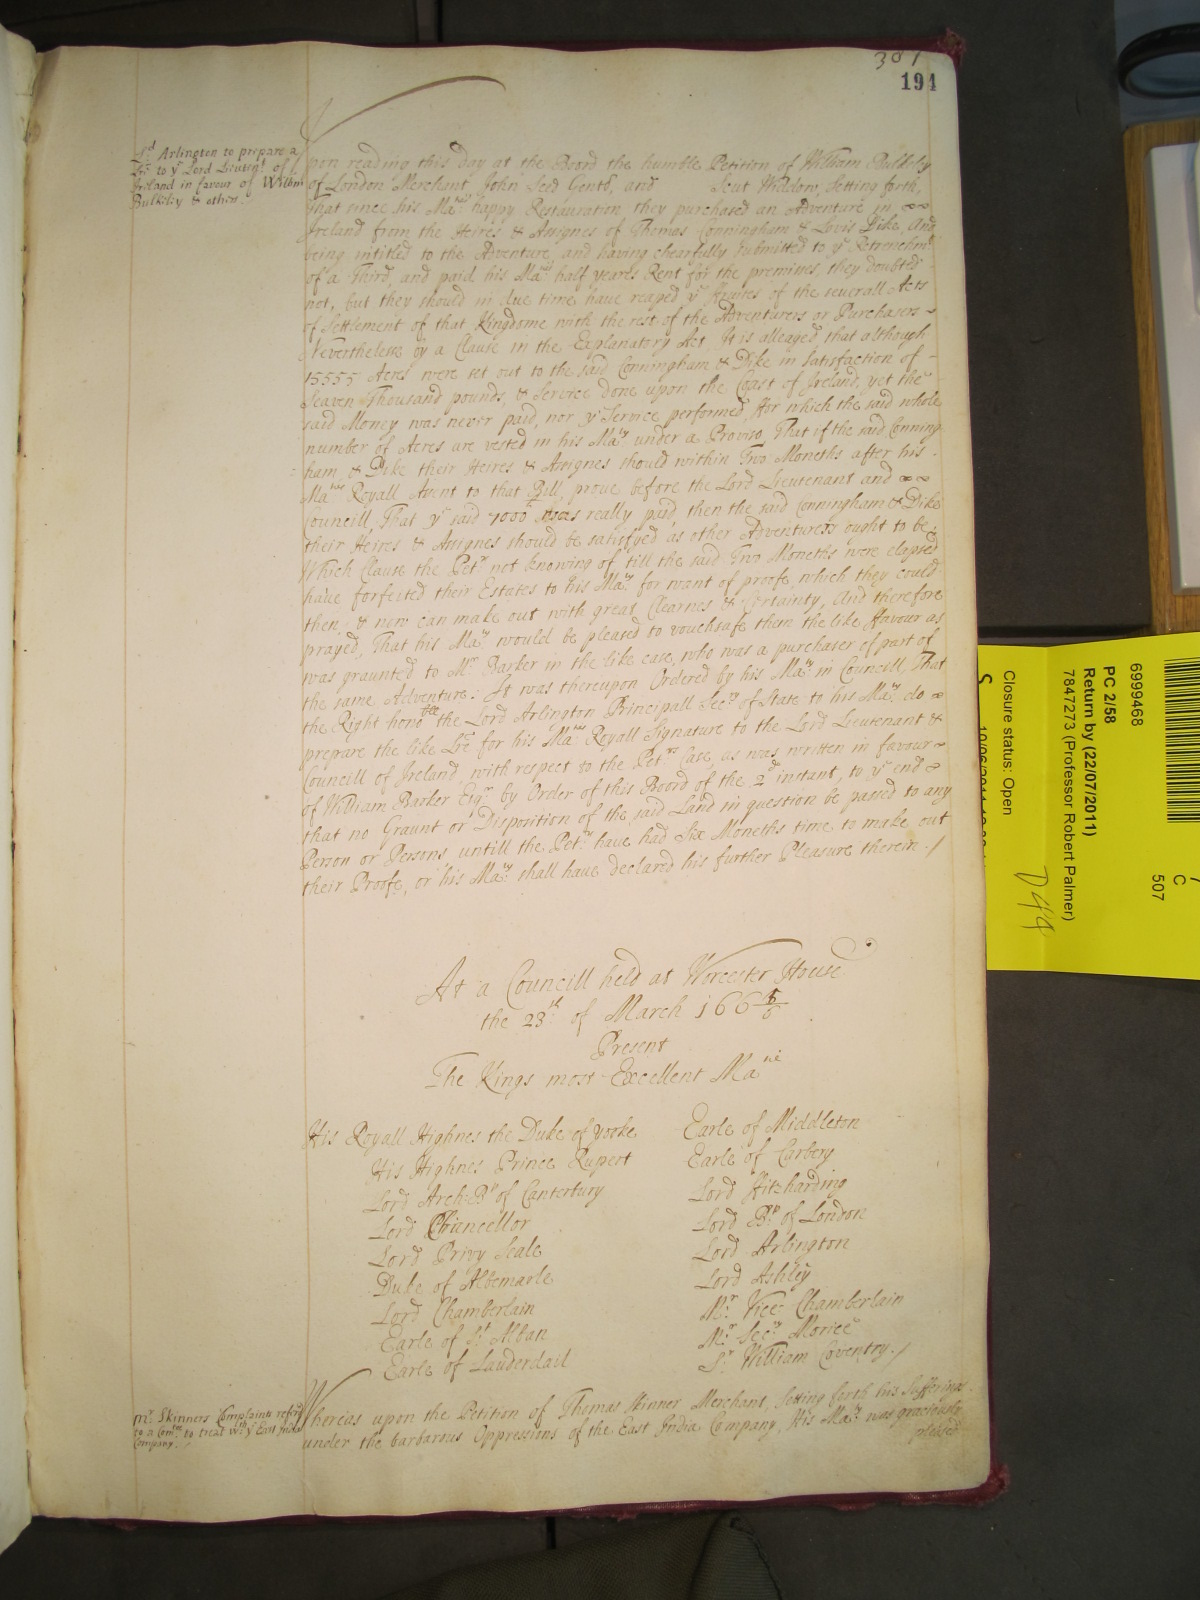 387
194
Ld Arlington to prepare a
Lre to ye Lord Lieutent of
Ireland in favour of Willm
Bulkiley & others.
Upon reading this day at the Board the humble Petition of William Bulkiley
of London Merchant, John Seed Gentd, and Scut Widdow, setting forth,
That since his Mates happy Restauration they purchased an Adventure in
Ireland from the Heires & Assignes of Thomas Conningham & Lewis Dike, And
being intitled to the Adventure, and having chearfully submitted to ye Retrenchmt
of a Third, and paid his Mates half years Rent for the premises, they doubted
not, but they should in due time have reaped ye ffruites of the severall Acts
of Settlement of that Kingdome with the rest of the Adventurers or Purchasers
Nevertheless by a Clause in the Explanatory Act, It is alleaged that although
15555 Acres were set out to the said Conningham & Dike in satisfaction of
Seaven Thousand pounds, & Service done upon the Coast of Ireland, yet the
said Money was never paid, nor ye Service performed, ffor which the said whole
number of Acres are vested in his Maty under a Proviso, That if the said Conning
ham, & Dike their Heires & Assignes should within Two Moneths after his
Mates Royall Assent to that Bill, prove before the Lord Lieutenant and
Councill, That ye said 7000l was really paid, then the said Conningham & Dike
their Heires & Assignes should be satisfyed as other Adventurers ought to be;
Which Clause the Petrs not knowing of till the said Two Moneths were elapsed
have forfeited their Estates to his Maty for want of proofe, which they could
then & now can make out with great Clearnes & Certainty, And therefore
prayed, That his Maty would be pleased to vouchsafe them the like ffavour as
was graunted to Mr Barker in the like case, who was a purchaser of part of
the same Adventure: It was thereupon Ordered by his Maty in Councill, That
the Right honoble the Lord Arlington Principall Secry of State to his Maty do
prepare the like Lre for his Mates Royall Signature to the Lord Lieutenant &
Councill of Ireland, with respect to the Petrs Case, as was written in favour
of William Barker Esqr by Order of this Board of the 2d instant, to ye end
that no Graunt or Disposition of the said Land in question be passed to any
Person or Persons untill the Petrs have had Six Moneths time to make out
their Proofe, or his Maty shall have declared his further Pleasure therein./
At a Councill held at Worcester House
the 23th of March 1665/6
Present
The Kings most Excellent Matie
His Royall Highnes the Duke of Yorke
His Highnes Prince Rupert
Lord Arch-Bp of Canterbury
Lord Chancellor
Lord Privy Seale
Duke of Albemarle
Lord Chamberlain
Earle of St Alban
Earle of Lauderdail
Earle of Middleton
Earle of Carbery
Lord Fitzharding
Lord Bp of London
Lord Arlington
Lord Ashley
Mr Vice Chamberlain
Mr Secry Morice
Sr William Coventry./
Mr Skinners Complaints referd
to a Comtee to treat wth ye East India
Company.
Whereas upon the Petition of Thomas Skinner Merchant, setting forth his Sufferings
under the barbarous Oppressions of the East India Company, His Maty was graciously
pleased
6999468
PC 2/58
Return by (22/07/2011)
7847273 (Professor Robert Palmer)
Closure status: Open
C
507
D44